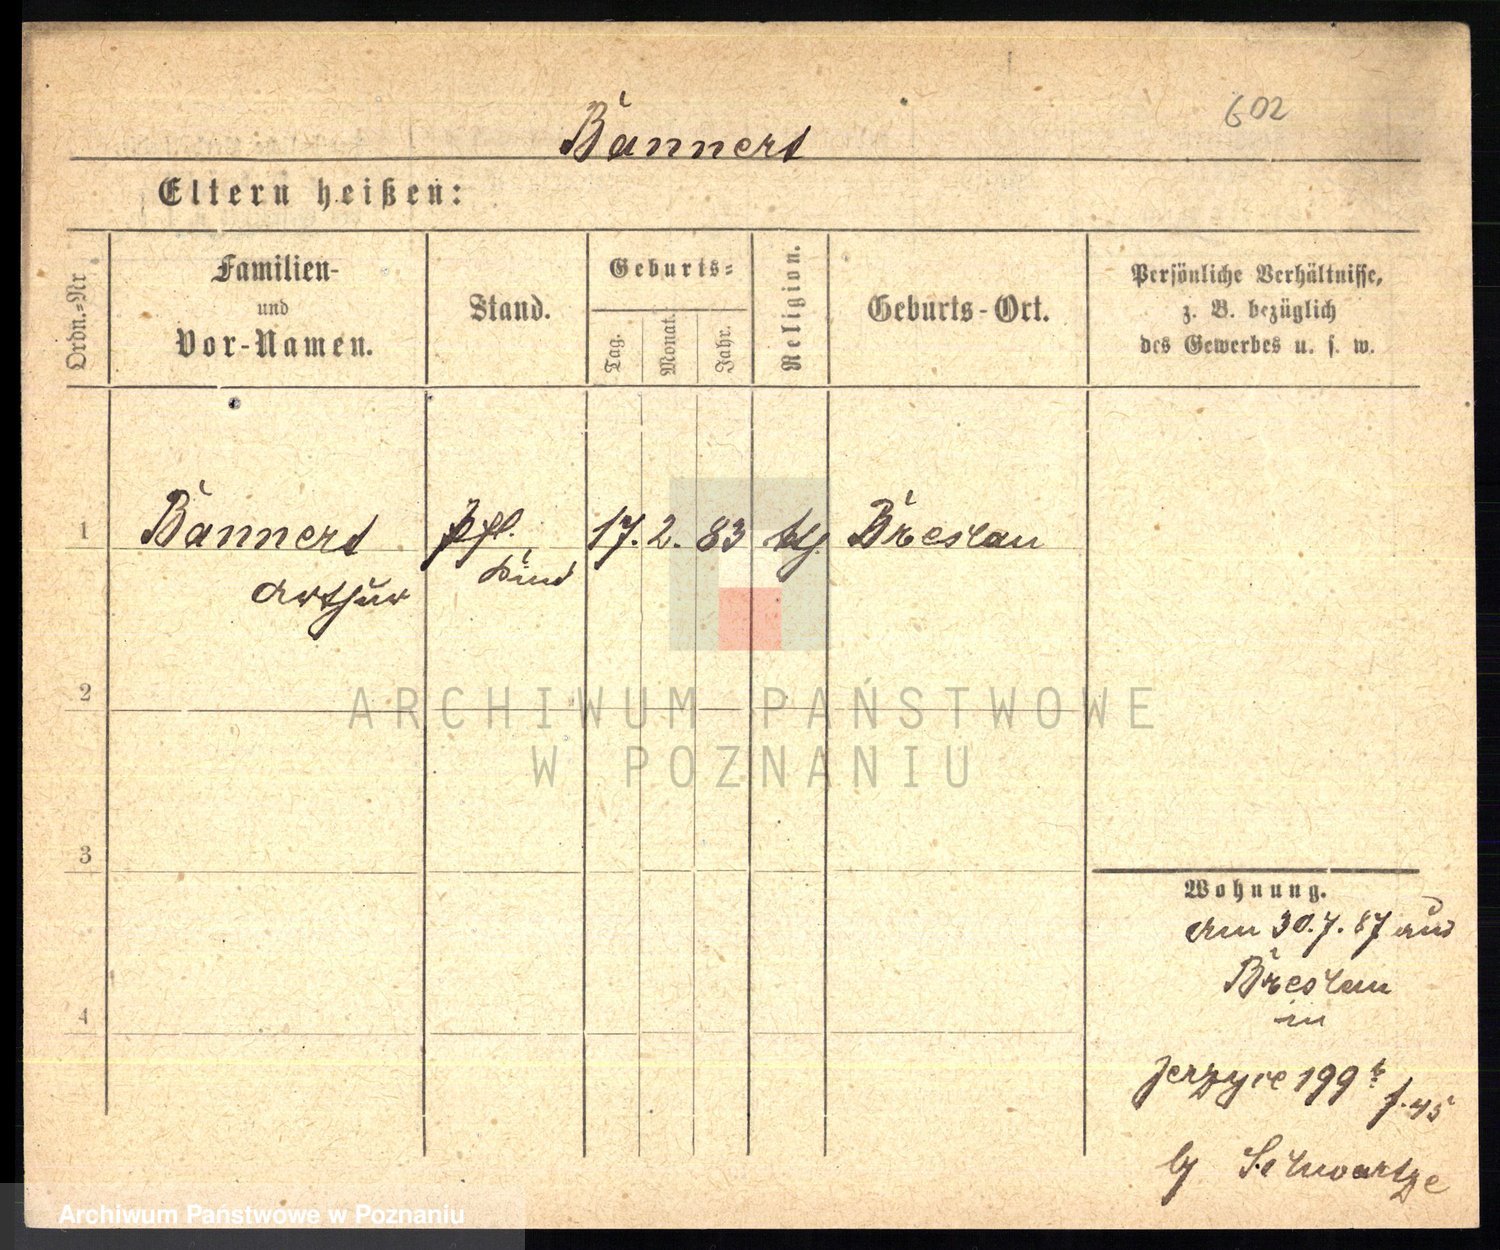 602
Bannert
Eltern heißen:
Ordn.-Nr
Familien-
und
Vor-Namen.
Stand.
Geburts-
Tag.
Monat.
Jahr.
Religion.
Geburts-Ort.
Persönliche Verhältnisse,
z. B. bezüglich
des Gewerbes u. s. w.
1
Bannert
Arthur
Pfl.
Kind
17. 2. 83
Breslau
2
3
4
Wohnung.
am 30.7.87 aus
Breslau
in
Jerzyce 199
f. 45
Schwartze
ARCHIWUM PAŃSTWOWE
W POZNANIU
Archiwum Państwowe w Poznaniu